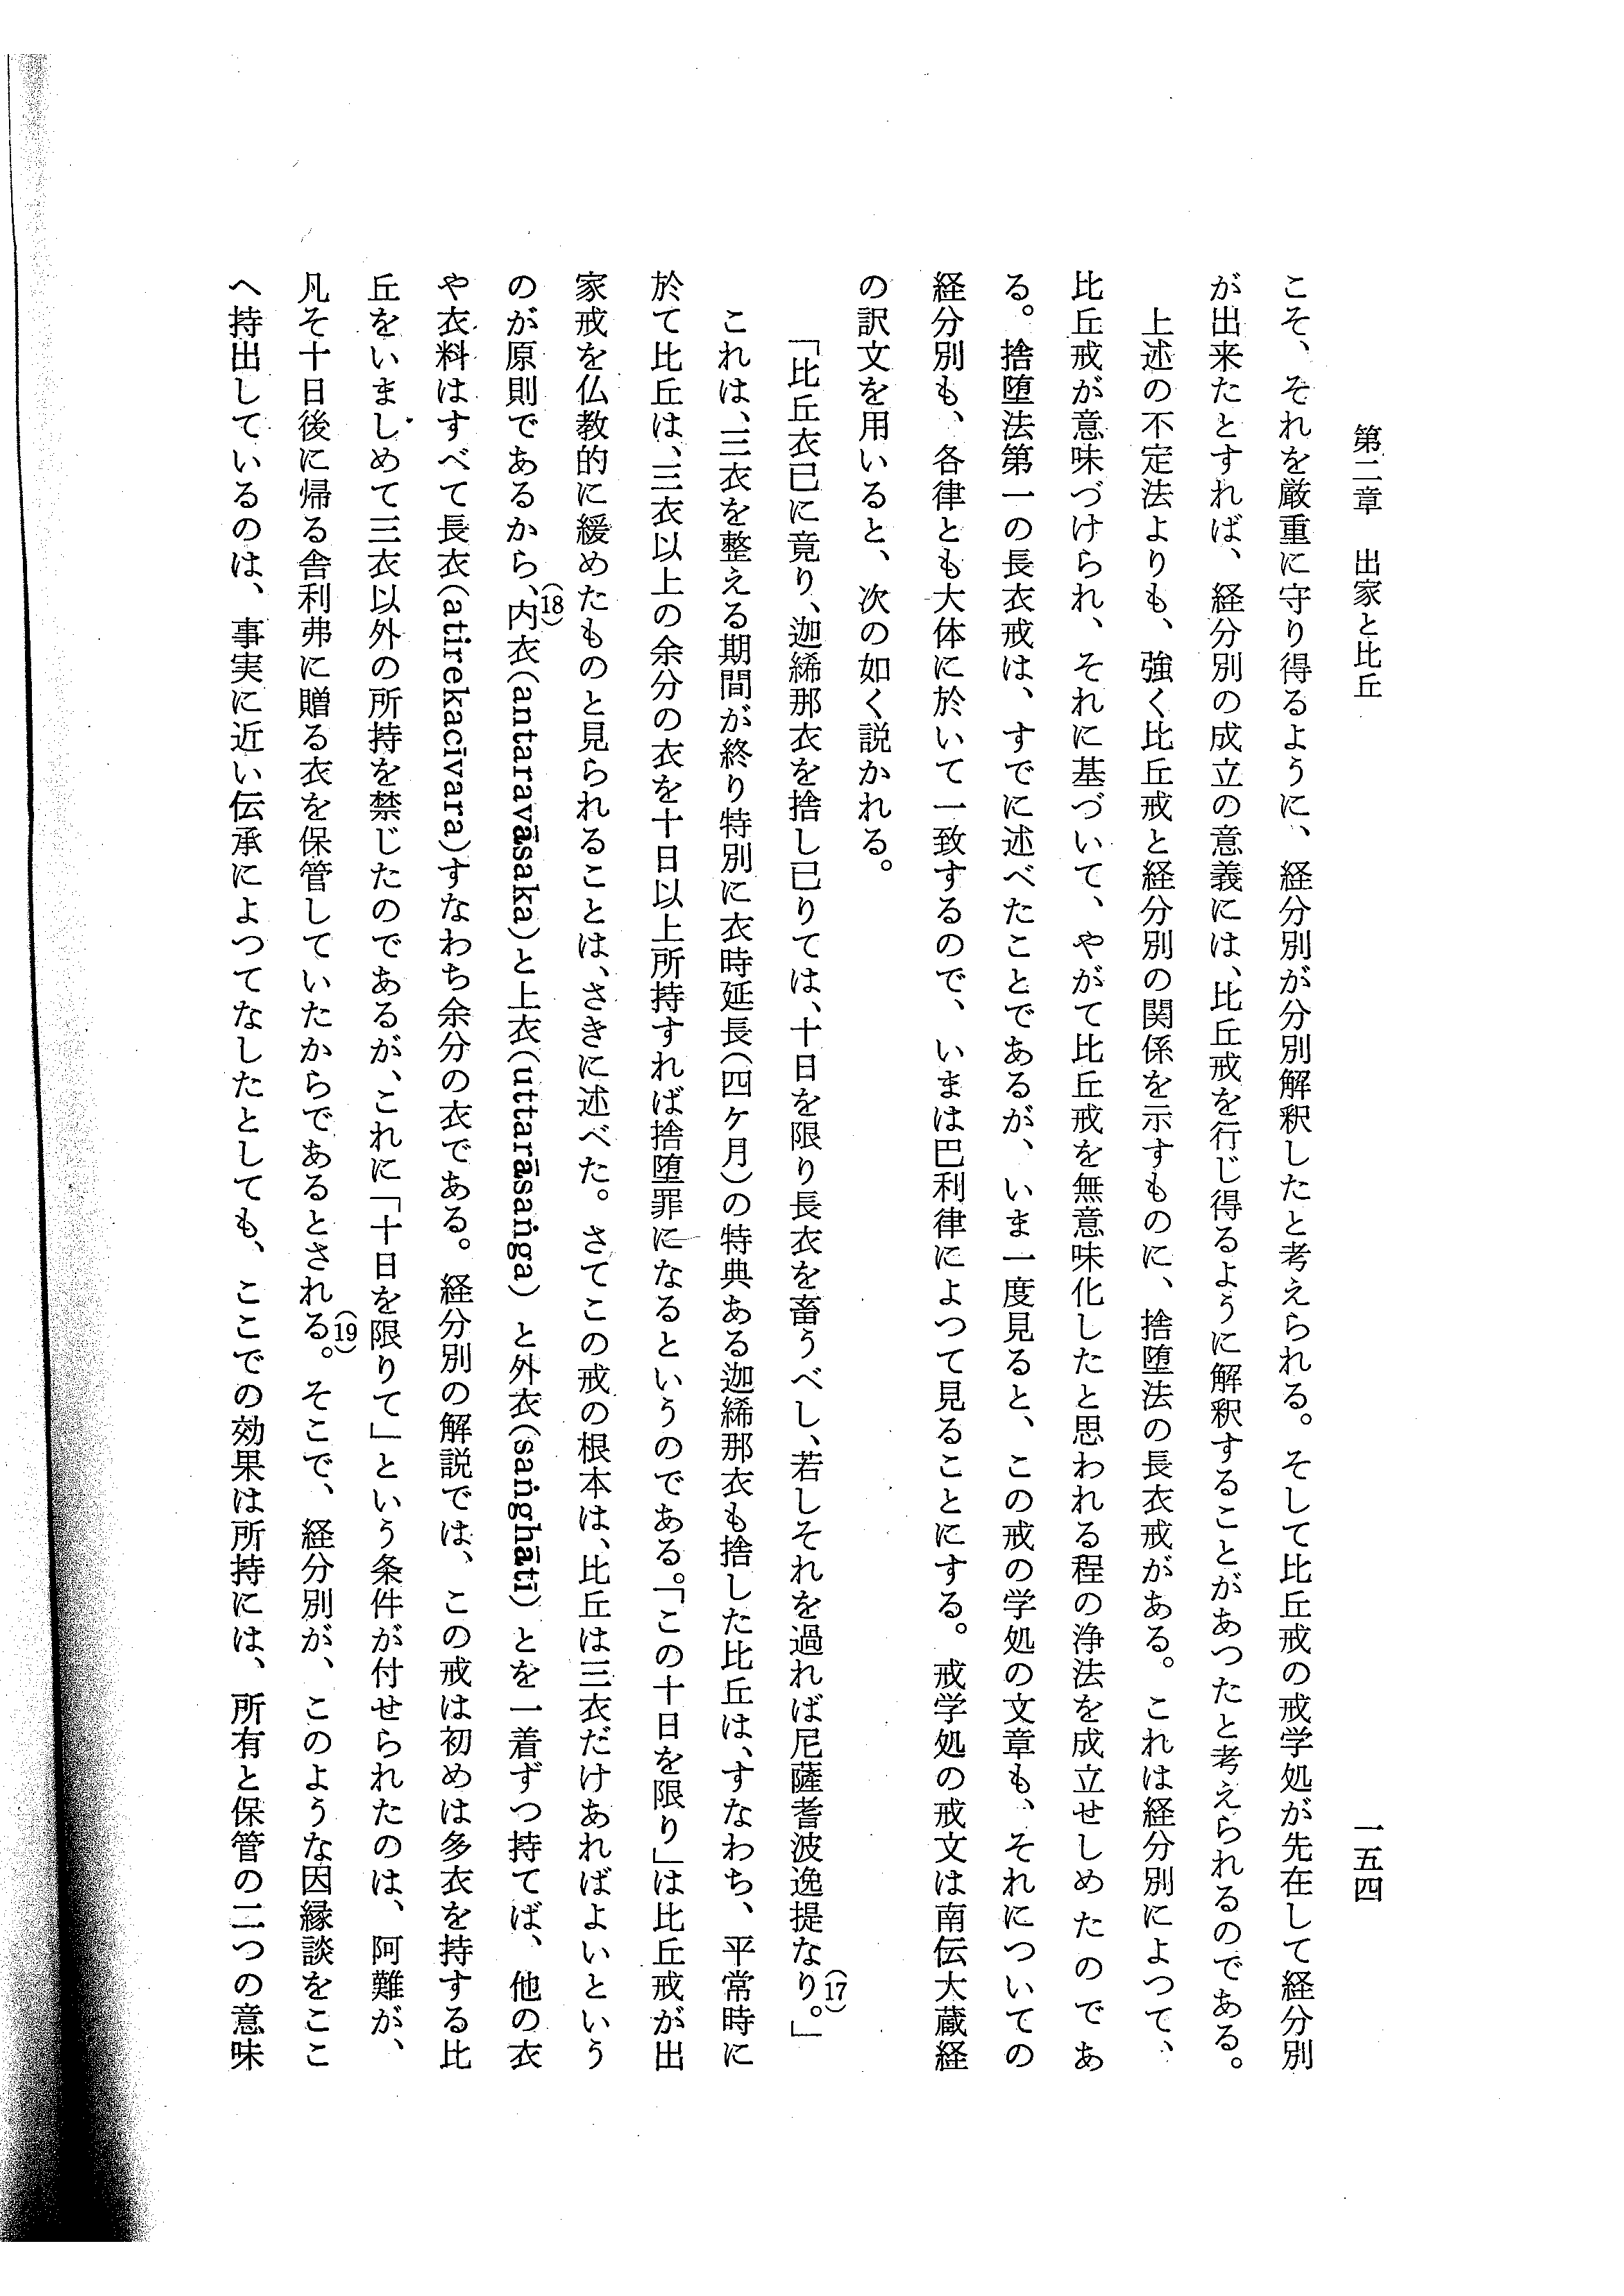 第二章　出家と比丘
一五四
こそ、それを厳重に守り得るように、経分別が分別解釈したと考えられる。そして比丘戒の戒学処が先在して経分別
が出来たとすれば、経分別の成立の意義には、比丘戒を行じ得るように解釈することがあつたと考えられるのである。
上述の不定法よりも、強く比丘戒と経分別の関係を示すものに、捨堕法の長衣戒がある。これは経分別によつて、
比丘戒が意味づけられ、それに基づいて、やがて比丘戒を無意味化したと思われる程の浄法を成立せしめたのであ
る。捨堕法第一の長衣戒は、すでに述べたことであるが、いま一度見ると、この戒の学処の文章も、それについての
経分別も、各律とも大体に於いて一致するので、いまは巴利律によつて見ることにする。戒学処の戒文は南伝大蔵経
の訳文を用いると、次の如く説かれる。
「比丘衣已に竟り、迦絺那衣を捨し已りては、十日を限り長衣を畜うべし、若しそれを過れば尼薩耆波逸提なり。」(17)
これは、三衣を整える期間が終り特別に衣時延長(四ケ月)の特典ある迦絺那衣も捨した比丘は、すなわち、平常時に
於て比丘は、三衣以上の余分の衣を十日以上所持すれば捨堕罪になるというのである。「この十日を限り」は比丘戒が出
家戒を仏教的に緩めたものと見られることは、さきに述べた。さてこの戒の根本は、比丘は三衣だけあればよいという
のが原則であるから、(18)内衣(antaravāsaka)と上衣(uttarāsaṅga)と外衣(saṅghāti)とを一着ずつ持てば、他の衣
や衣料はすべて長衣(atirekacīvara)すなわち余分の衣である。経分別の解説では、この戒は初めは多衣を持する比
丘をいましめて三衣以外の所持を禁じたのであるが、これに「十日を限りて」という条件が付せられたのは、阿難が、
凡そ十日後に帰る舎利弗に贈る衣を保管していたからであるとされる。(19)そこで、経分別が、このような因縁談をここ
へ持出しているのは、事実に近い伝承によつてなしたとしても、ここでの効果は所持には、所有と保管の二つの意味